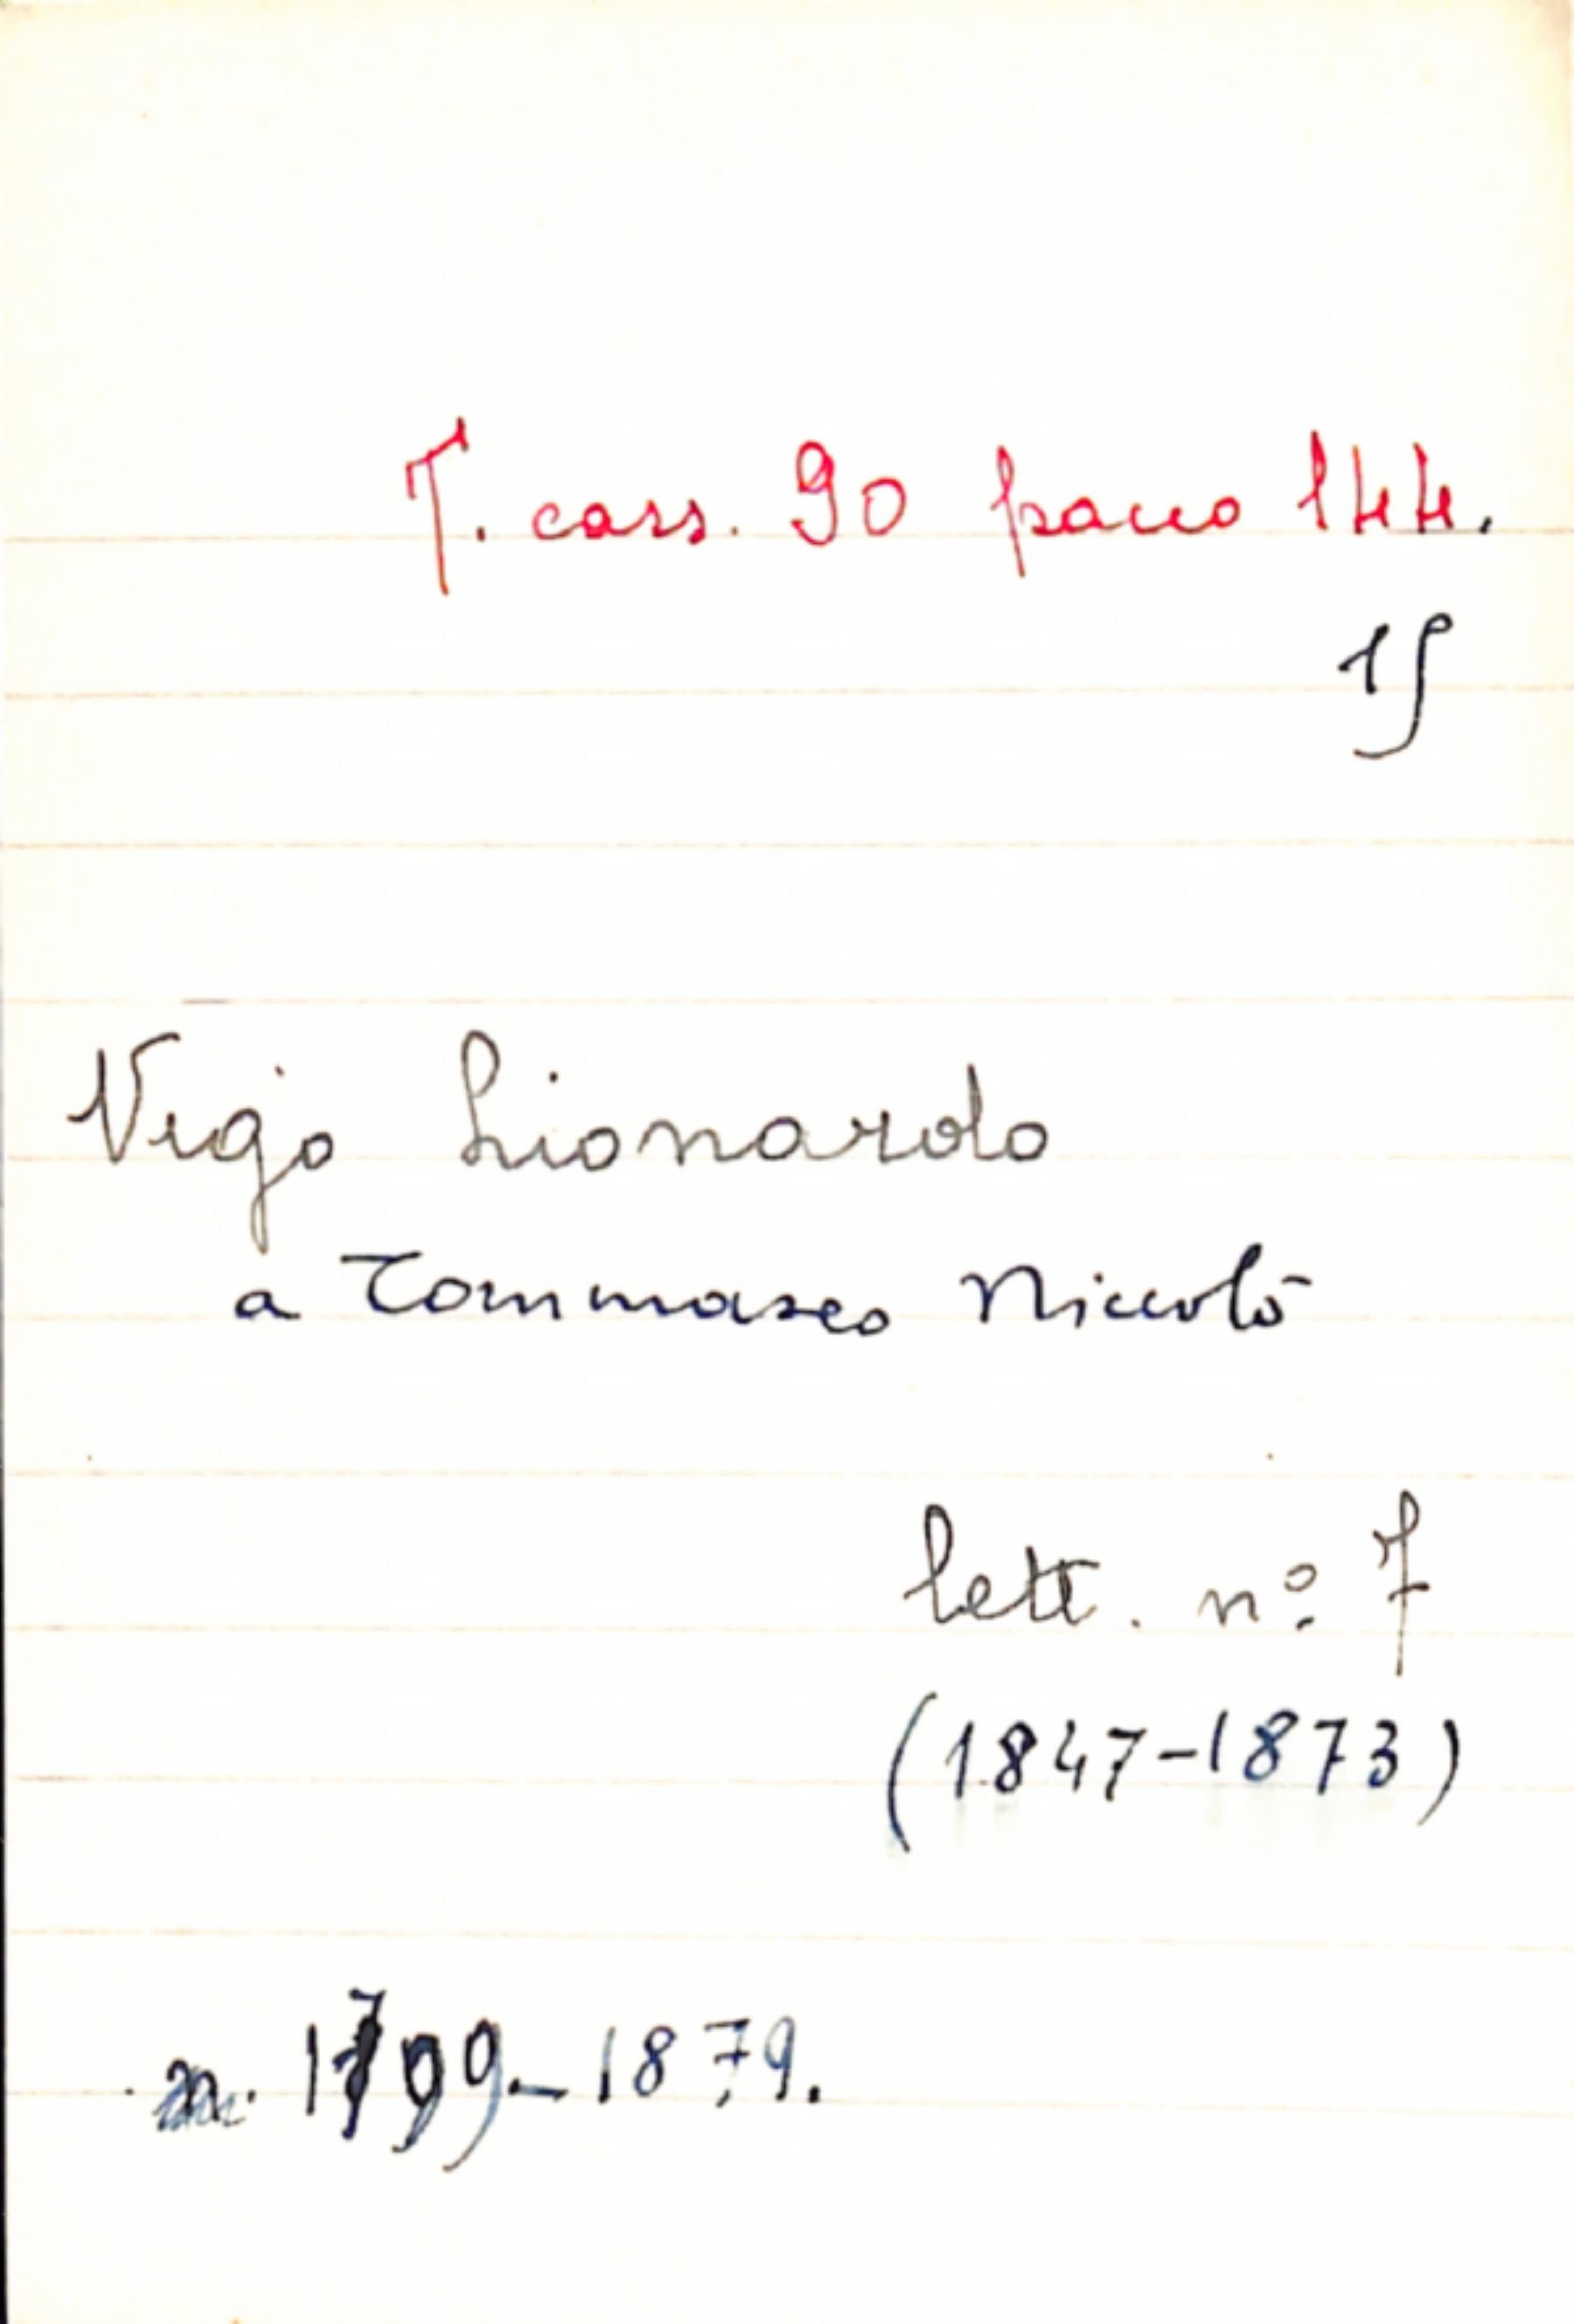 T. cass. 90 pacco 144.
15
Vigo Lionardo
a Tommaseo Niccolò
lett. nº 7
(1847-1873)
n. 1799-1879.